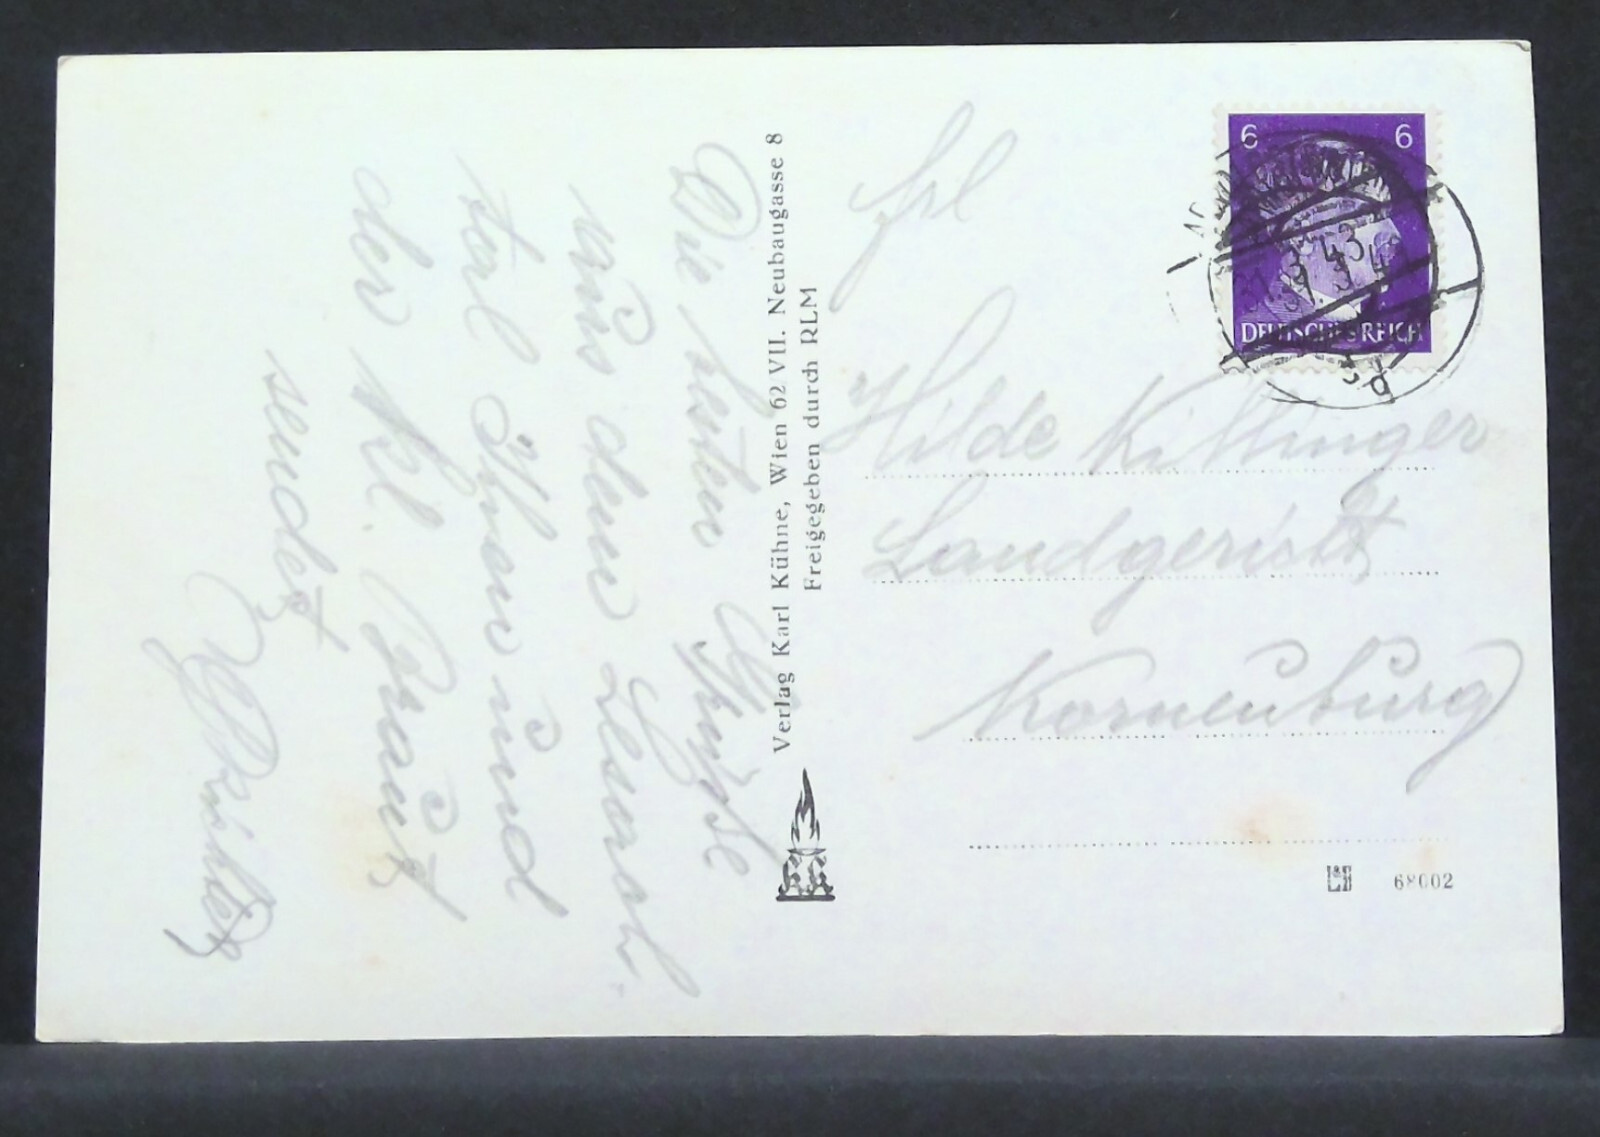 Die besten Grüße
aus dem Lesach-
tal Ihnen und
der kl. Traut
sendet
Verlag Karl Kühne, Wien 62 VII. Neubaugasse 8
Freigegeben durch RLM
6 6
DEUTSCHES REICH
Frl
Hilde Killinger
Landgericht
Korneuburg